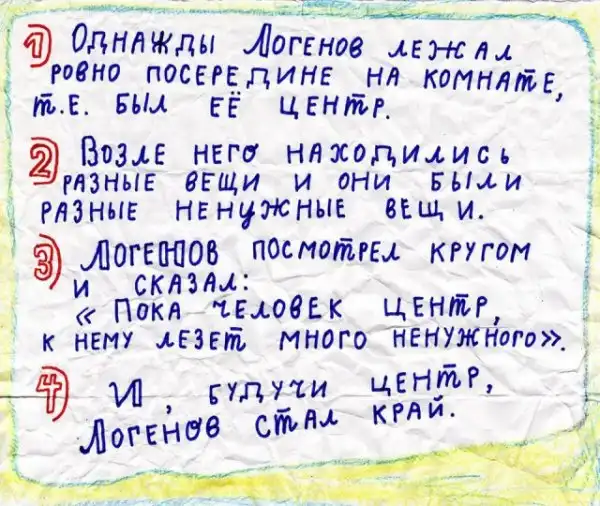 1) Однажды Логенов лежал
ровно посередине на комнате,
т.е. был её центр.
2) Возле него находились
разные вещи и они были
разные ненужные вещи.
3) Логенов посмотрел кругом
и сказал:
« Пока человек центр,
к нему лезет много ненужного».
4) И, будучи центр,
Логенов стал край.